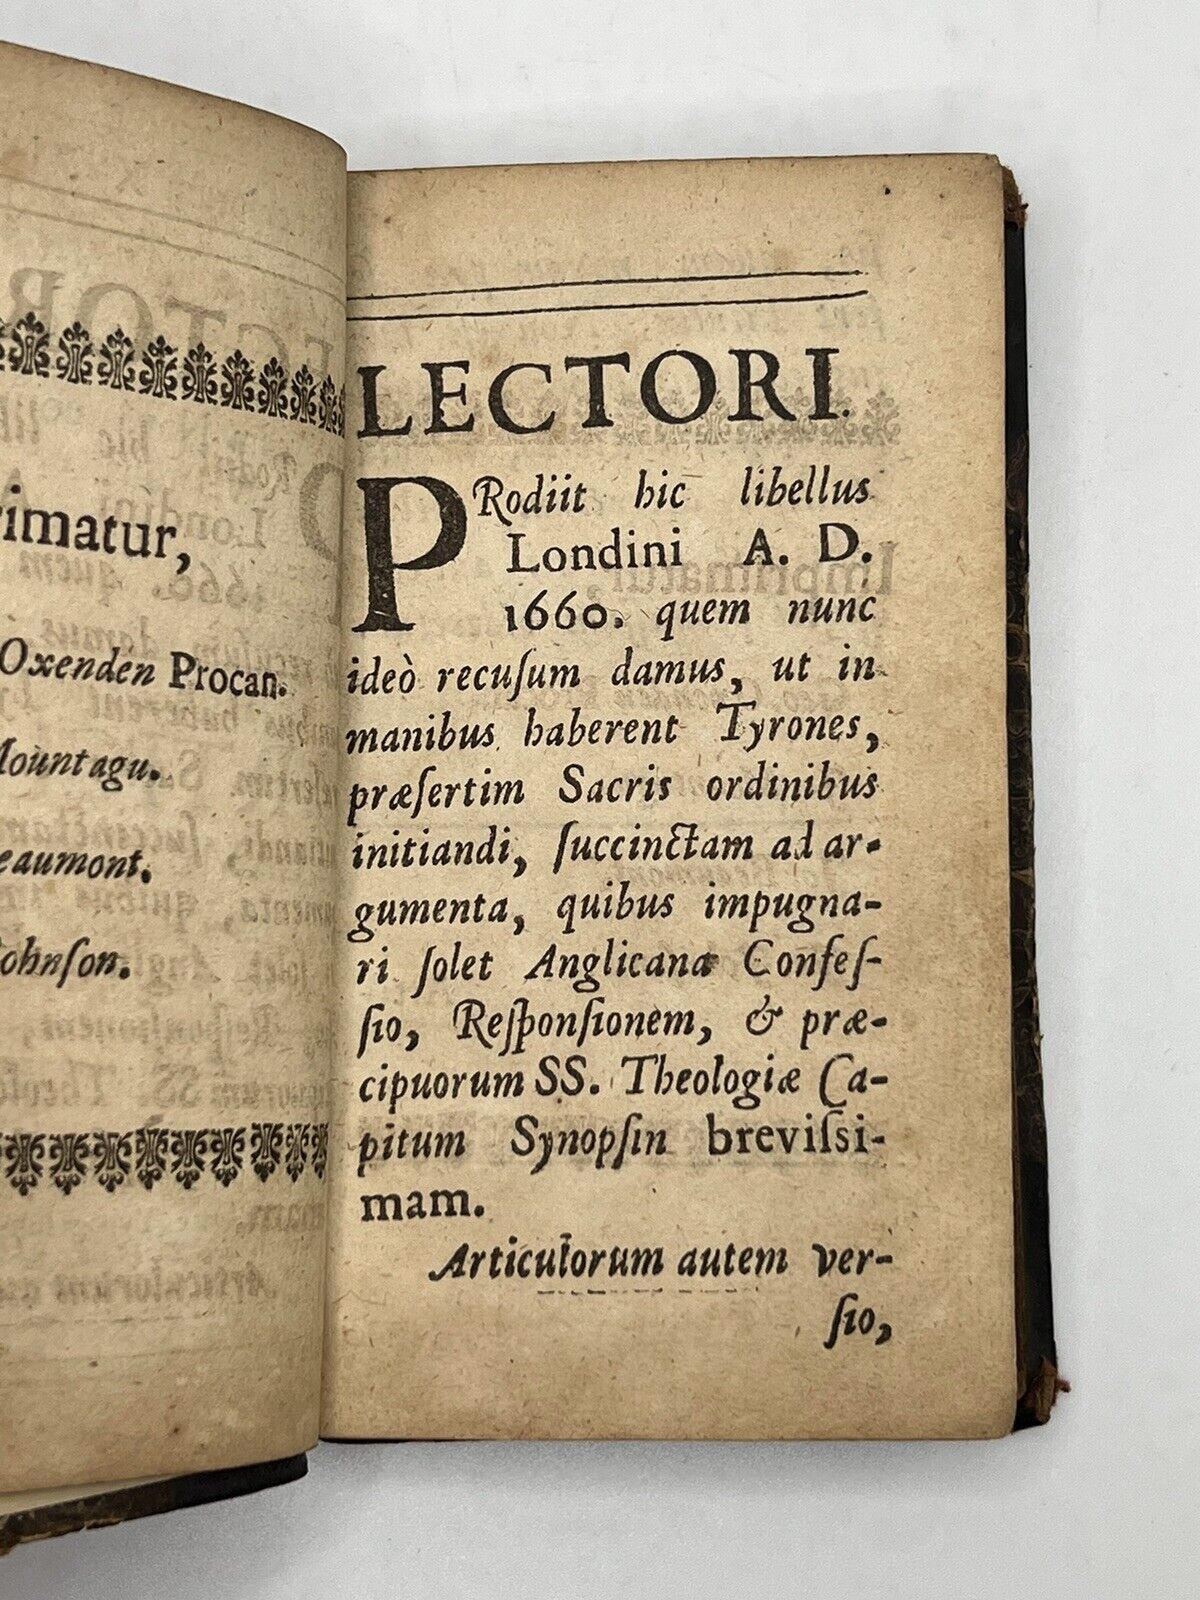 Oxenden Procan.
LECTORI.
PRodiit hic libellus
Londini A. D.
1660. quem nunc
ideò recuſum damus, ut in
manibus haberent Tyrones,
præſertim Sacris ordinibus
initiandi, ſuccinctam ad ar-
gumenta, quibus impugna-
ri ſolet Anglicana Confeſ-
ſio, Reſponſionem, & præ-
cipuorum SS. Theologiæ Ca-
pitum Synopſin breviſsi-
mam.
Articulorum autem ver-
ſio,